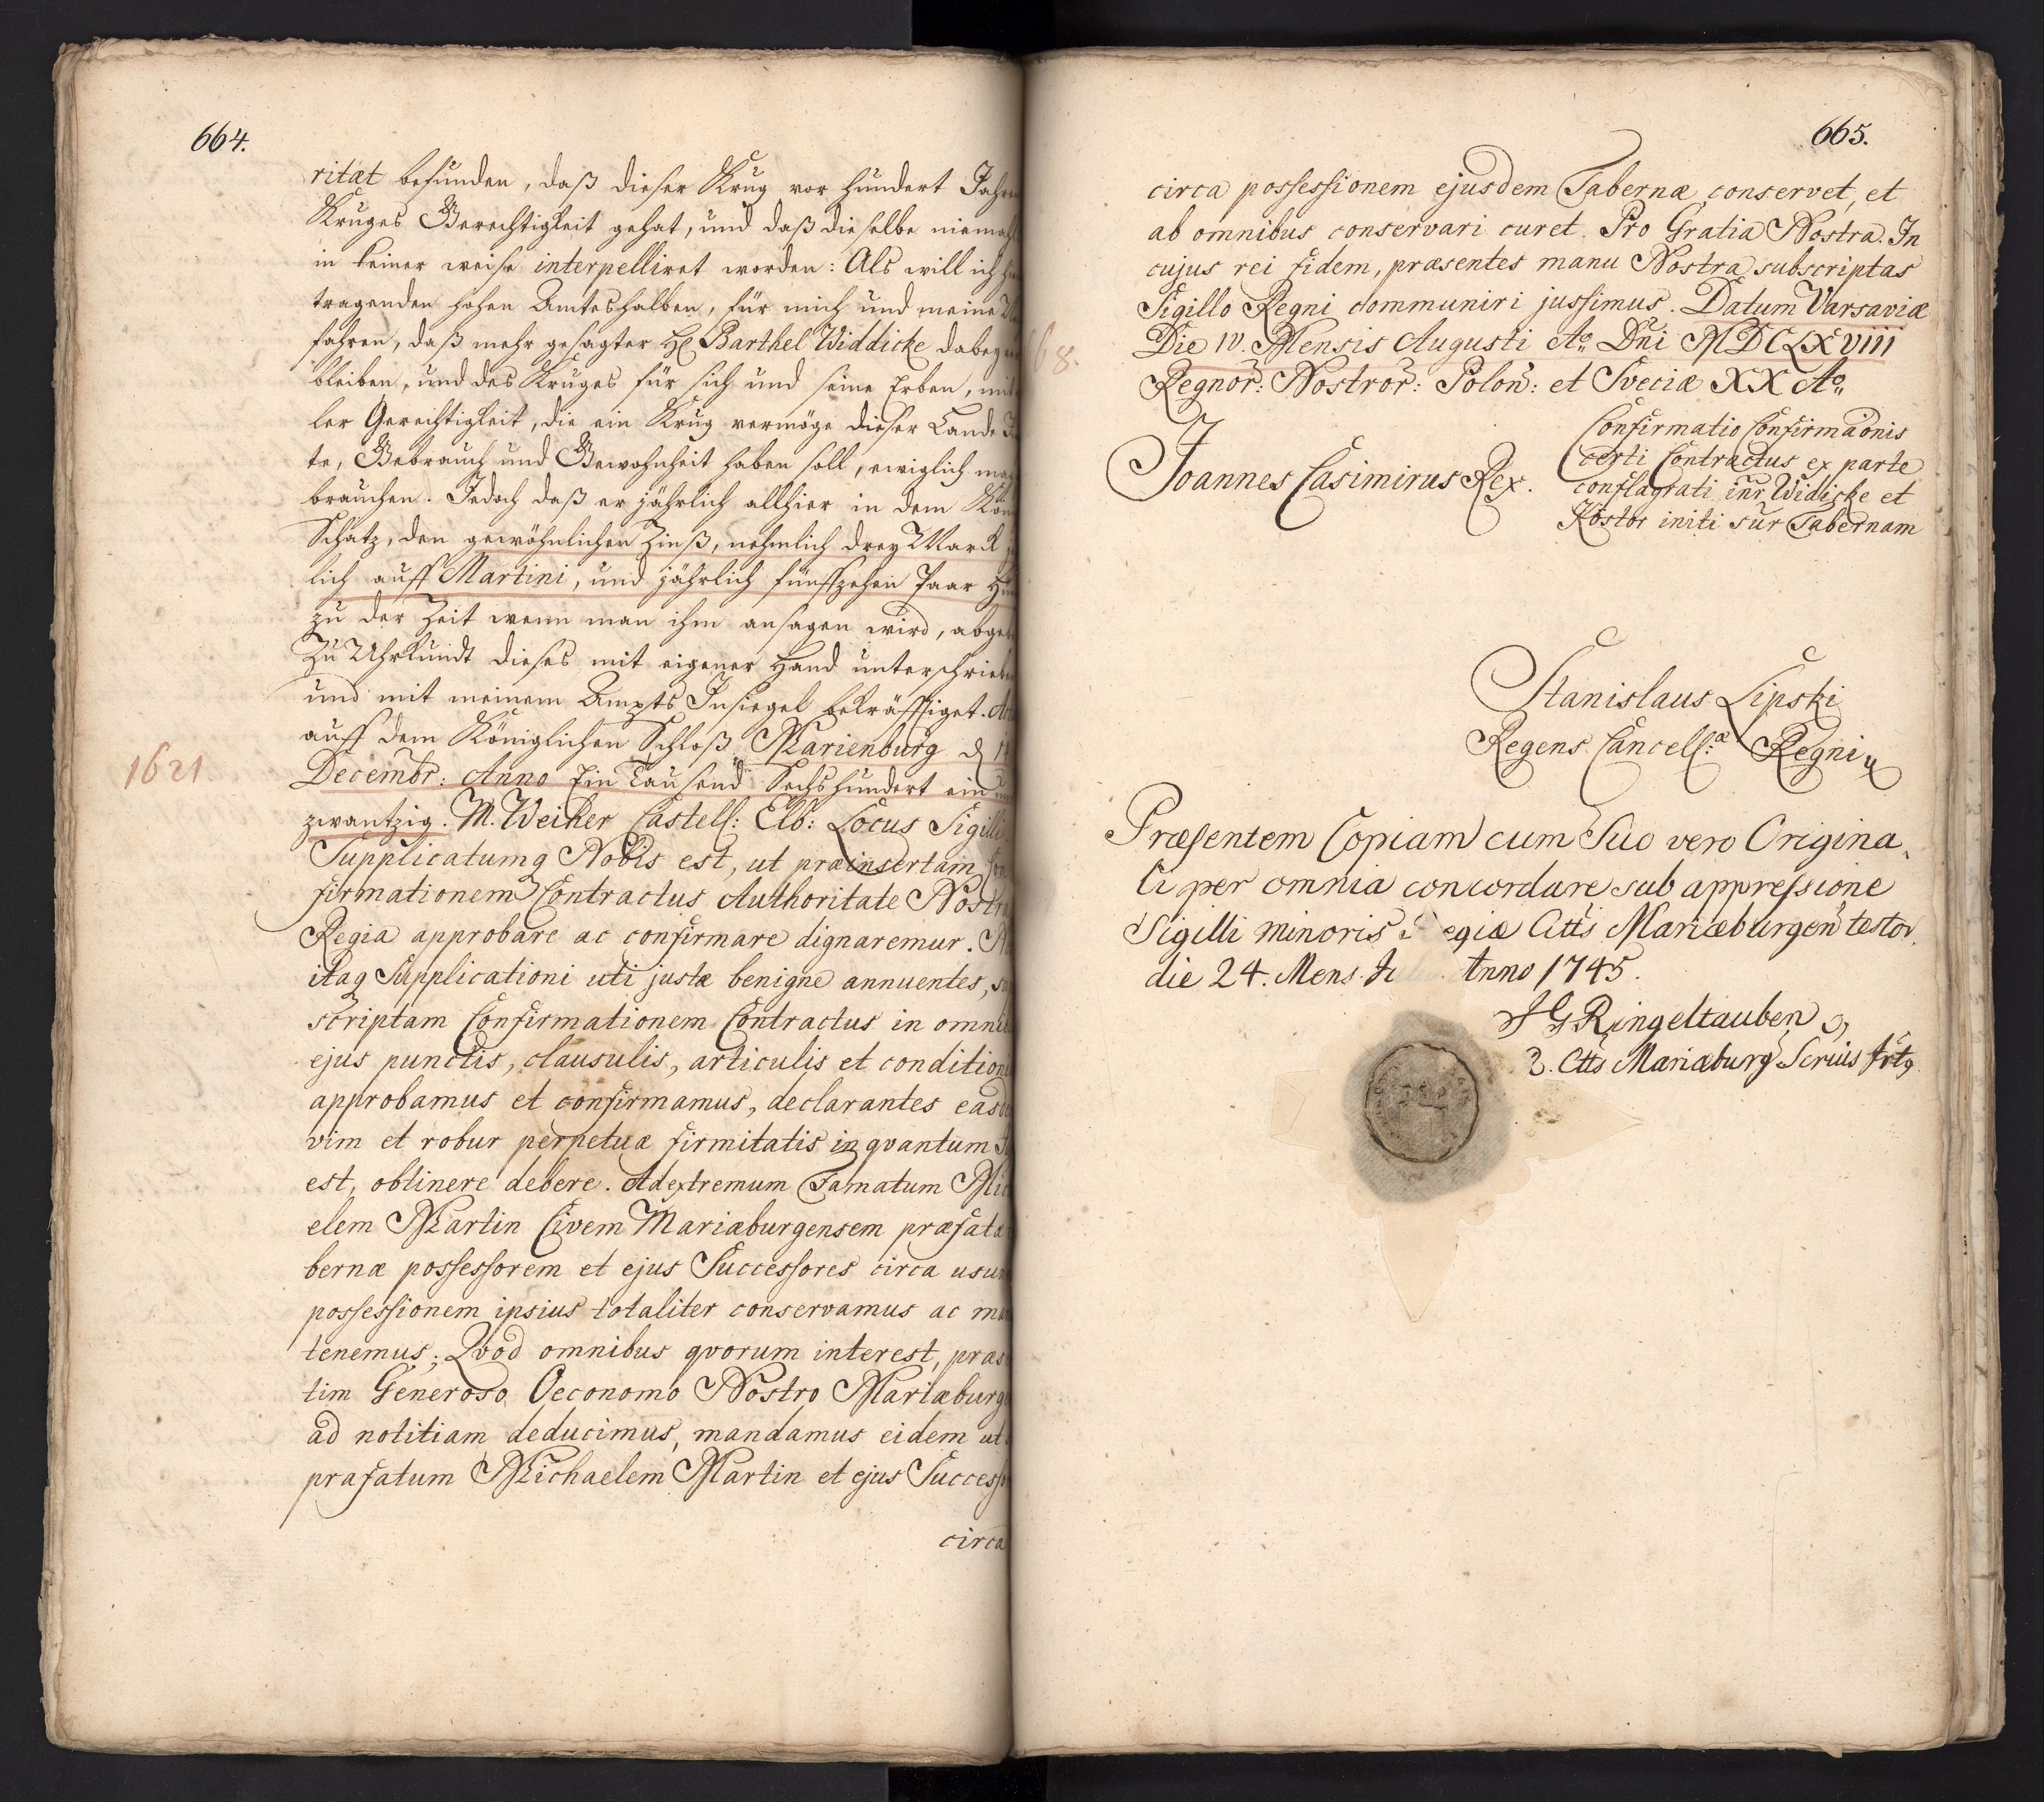 664.
ritæt befunden, daß dieser Krug vor hundert Jahren
Kruges Gerechtigkeit gehat, und daß dieselbe niemahl
in keiner weise interpelliret worden: Als will ich
tragenden hohen Amteshalben, für mich und meine
fahren, daß mehr gesagter H. Barthel Widdicke dabey
bleiben, und des Kruges für sich und seine Erben, mit
ler Gerechtigkeit, die ein Krug vermöge dieser Lande
te, Gebrauch und Gewohnheit haben soll, ewiglich mag
brauchen. Jedoch daß er jährlich allhier in dem Kön
Schatz, den gewöhnlichen Zinß, nehmlich drey Mark
lich auff Martini, und jährlich fünffzehen Paar
zu der Zeit wenn man ihm ansagen wird, abgeb
Zu Uhrkundt dieses mit eigener Hand unterschrieben
und mit meinem Ampts Insiegel bekräfftiget.
auff dem Königlichen Schloß Marienburg d
1621.
Decembr: Anno Ein Tausend Sechshundert ein und
zwantzig. M. Weiher Castell: Elb: Locus Sigilli
Supplicatumq Nobis est, ut præinsertam Con
firmationem Contractus Authoritate Nostra
Regia approbare ac confirmare dignaremur.
itaq Supplicationi uti justæ benigne annuentes,
scriptam Confirmationem Contractus in omnib
ejus punctis, clausulis, articulis et conditioni
approbamus et confirmamus, declarantes easde
vim et robur perpetuæ firmitatis in qvantum
est, obtinere debere. Ad extremum Famatum Mich
elem Martin Civem Mariæburgensem præfatæ
bernæ possessorem et ejus Successores circa usum
possessionem ipsius totaliter conservamus ac man
tenemus; Qvod omnibus qvorum interest, præs
tim Generoso Oeconomo Nostro Mariæburg
ad notitiam deducimus, mandamus eidem ut
præfatum Michaelem Martin et ejus Successor
circa
665.
circa possessionem ejusdem Tabernæ conservet, et
ab omnibus conservari curet. Pro Gratia Nostra. In
cujus rei fidem, præsentes manu Nostra subscriptas
Sigillo Regni communiri jussimus. Datum Varsaviæ
Die IV. Mensis Augusti Ao Dni MDCLXVIII
68.
Regnor: Nostror: Polon: et Sveciæ XX Ao
Confirmatio Confirmaonis
certi Contractus ex parte
conflagrati inr Widicke et
Köstor initi sur Tabernam
Joannes Casimirus Rex.
Stanislaus Lipski
Regens Cancell:æ Regni
Præsentem Copiam cum Suo vero Origina
li per omnia concordare sub appressione
Sigilli minoris egiæ Citts Mariæburgen testor
die 24. Mens. Anno 1745.
J G Ringeltauben
Ctts Mariæburg